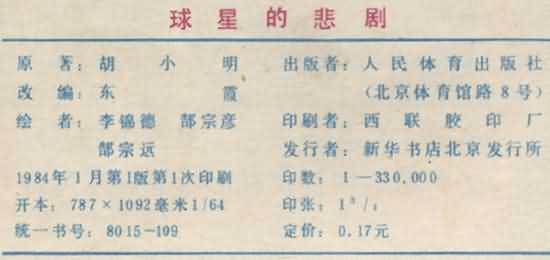 球星的悲剧
原著：胡小明
改编：东霞
绘者：李锦德 郜宗彦
郜宗远
1984年1月第1版第1次印刷
开本：787×1092毫米1/64
统一书号：8015-199
出版者：人民体育出版社
（北京体育馆路8号）
印刷者：西联胶印厂
发行者：新华书店北京发行所
印数：1—330,000
印张：1
定价：0.17元